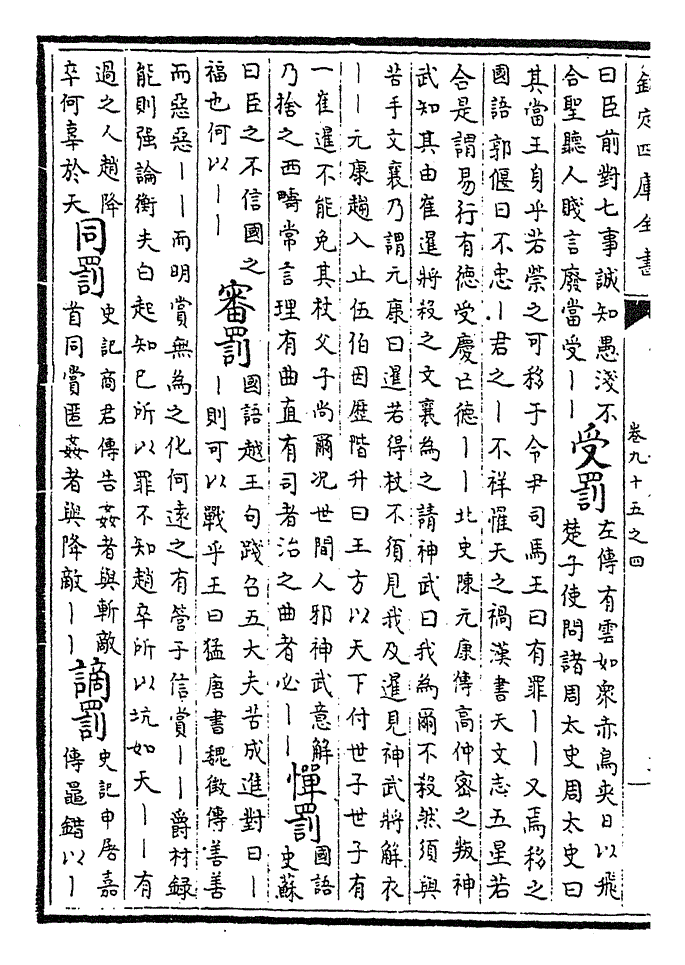 欽定四庫全書
卷九十五之四
曰臣前對七事誠知愚淺不
合聖聽人賤言廢當受丨丨
受罰
左傳有雲如衆赤鳥夾日以飛
楚子使問諸周太史周太史曰
其當王身乎若禜之可移于令尹司馬王曰有罪丨丨又焉移之
國語郭偃曰不忠丨君之丨不祥罹天之禍漢書天文志五星若
合是謂易行有德受慶亡德丨丨北史陳元康傳高仲密之叛神
武知其由崔暹將殺之文襄為之請神武曰我為爾不殺然須與
苦手文襄乃謂元康曰暹若得杖不須見我及暹見神武將解衣
丨丨元康趨入止伍伯因歷階升曰王方以天下付世子世子有
一崔暹不能免其杖父子尚爾况世間人邪神武意解
乃捨之西疇常言理有曲直有司者治之曲者必丨丨
憚罰
國語
史蘇
曰臣之不信國之
福也何以丨丨
審罰
國語越王句踐召五大夫苦成進對曰丨
丨則可以戰乎王曰猛唐書魏徵傳善善
而惡惡丨丨而明賞無為之化何遠之有管子信賞丨丨爵材録
能則强論衡夫白起知己所以罪不知趙卒所以坑如天丨丨有
過之人趙降
卒何辜於天
同罰
史記商君傳告姦者與斬敵
首同賞匿姦者與降敵丨丨
謫罰
史記申屠嘉
傳鼂錯以丨